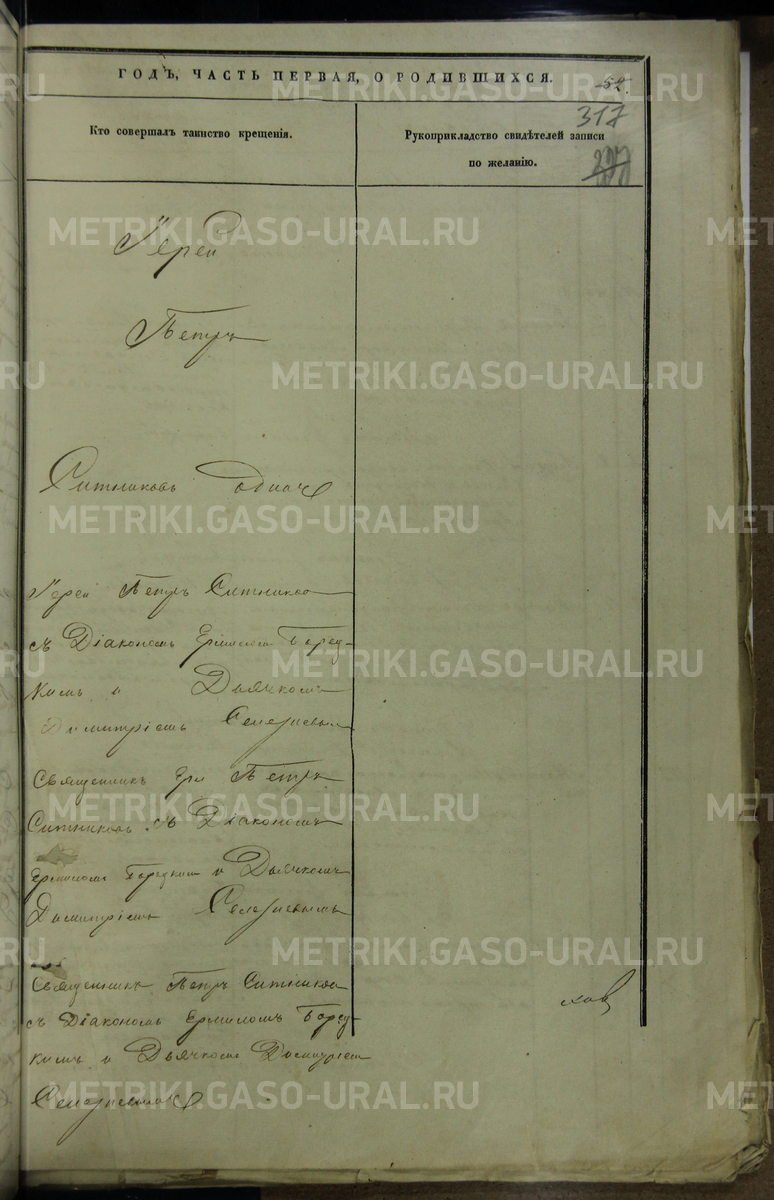 ГОДЪ, ЧАСТЬ ПЕРВАЯ, О РОДИВШИХСЯ.
317
Кто совершалъ таинство крещенія.
Рукоприкладство свидѣтелей записи
по желанію.
Іерей
Петръ
Ситниковъ
Іерей Петръ Ситников
съ Діакономъ Ермиломъ Боред-
кимъ и Дьячкомъ
Димитріемъ Селезневым
Священникъ Петръ
Ситниковъ съ Діакономъ
Ермиломъ Боредким и Дьячкомъ
Димитріемъ Селезневымъ
Священникъ Петръ Ситников
съ Діакономъ Ермиломъ Боред-
кимъ и Дьячкомъ Димитріем
Селезневымъ
METRIKI.GASO-URAL.RU